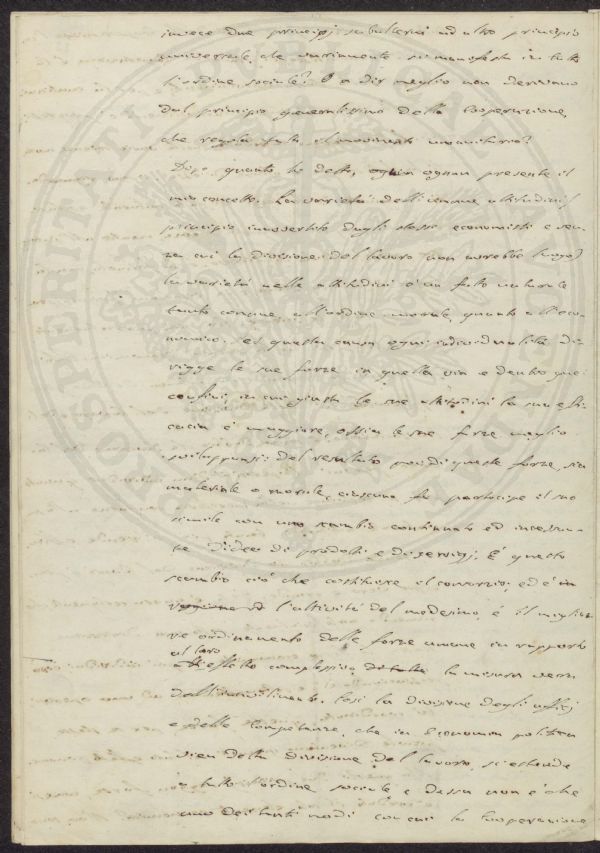 invece due principj subalterni ad altro principio
universale che variamente si manifesta in tutto
l'ordine sociale? O a dir meglio non derivano
dal principio generalissimo della Cooperazione,
che regola tutto il movimento umanitario?
Dopo quanto ho detto, ognun presente il
mio concetto. La varietà dell'umane attitudini
principio inavvertito dagli stessi economisti e sen-
za cui la divisione del lavoro non avrebbe luogo
la varietà nelle attitudini è un fatto naturale
tanto comune all'ordine morale, quanto all'eco-
nomico. Per questa causa ogni individualità di-
rigge le sue forze in quella via e dentro quei
confini, in cui giusta le sue attitudini la sua effi-
cacia è maggiore, ossia le sue forze meglio
sviluppansi: del resultato poi di queste forze, sia
materiale o morale, ciascuno fa partecipe il suo
simile con uno scambio continuato ed incessan-
te d'idee di prodotti e di servigj. È questo
scambio ciò che costituisce il consorzio; ed è in
l'attività del medesimo, è il miglio-
re ordinamento delle forze umane in rapporto
al loro
effetto complessivo la misura vera
dell'incivilimento. Così la divisione degli uffizj
e delle competenze, che in Economia politica
vien detta divisione del lavoro, si estende
a tutto l'ordine sociale e dessa non è che
uno dei tanti modi con cui la Cooperazione